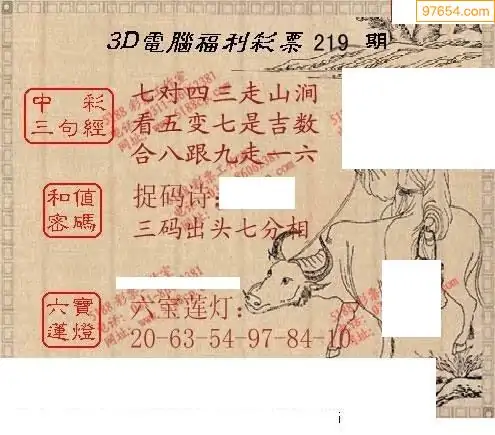 97654.com
3D電腦福利彩票 219 期
中彩
三句經
七对四三走山涧
看五变七是吉数
合八跟九走一六
和值
密碼
捉码诗:
三码出头七分相
六寶
蓮燈
六宝莲灯:
20-63-54-97-84-10